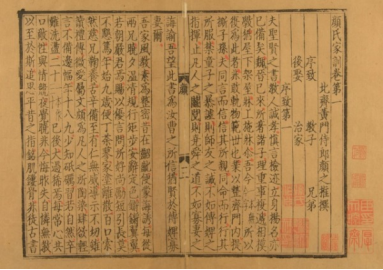 顏氏家訓卷第一
北齊黃門侍郎顏之推撰
序致 教子 兄弟
後娶 治家
序致第一
夫聖賢之書教人誠孝慎言檢迹立身揚名亦
已備矣魏晉已來所著諸子理重事複遞相模
斆猶屋下架屋牀上施牀耳吾今所以
復為此者非敢軌物範世也業以整齊門內提
撕子孫夫同言而信信其所親同命而行行其
所服禁童子之暴謔則師友之誡不如傅婢之
指揮止凡人之鬥鬩則堯舜之道不如寡妻之
誨諭吾望此書為汝曹之所信猶賢於傅婢寡
妻耳
吾家風教素為整密昔在齠齔便蒙誨誘每從
兩兄曉夕溫凊規行矩步安辭定色鏘鏘翼翼
若朝嚴君焉賜以優言問所好尚勵短引長莫
不懇篤年始九歲便丁荼蓼家塗離散百口索
然慈兄鞠養苦辛備至有仁無威導示不切雖
讀禮傳微愛屬文頗為凡人之所陶染肆欲輕
言不備邊幅年十八九少知砥礪習若自然卒
難洗盪二十已後大過稀焉每常心共
口敵性與情競夜覺曉非今悔昨失自憐無教
以至於斯追思平昔之指銘肌鏤骨非徒古書